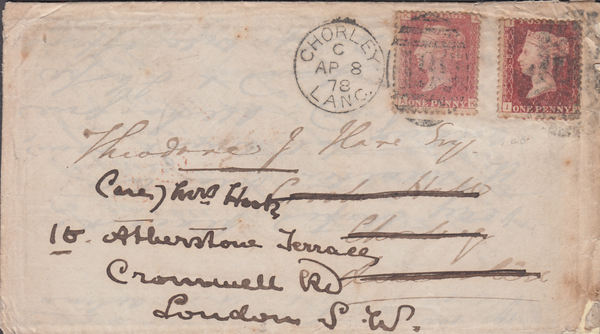 CHORLEY
C
AP 8
78
LANC.
ONE PENNY
ONE PENNY
Theodore J Hare Esq.
Care of Mrs
Chorley
16. Atherstone Terrace
Cromwell Rd
London S. W.